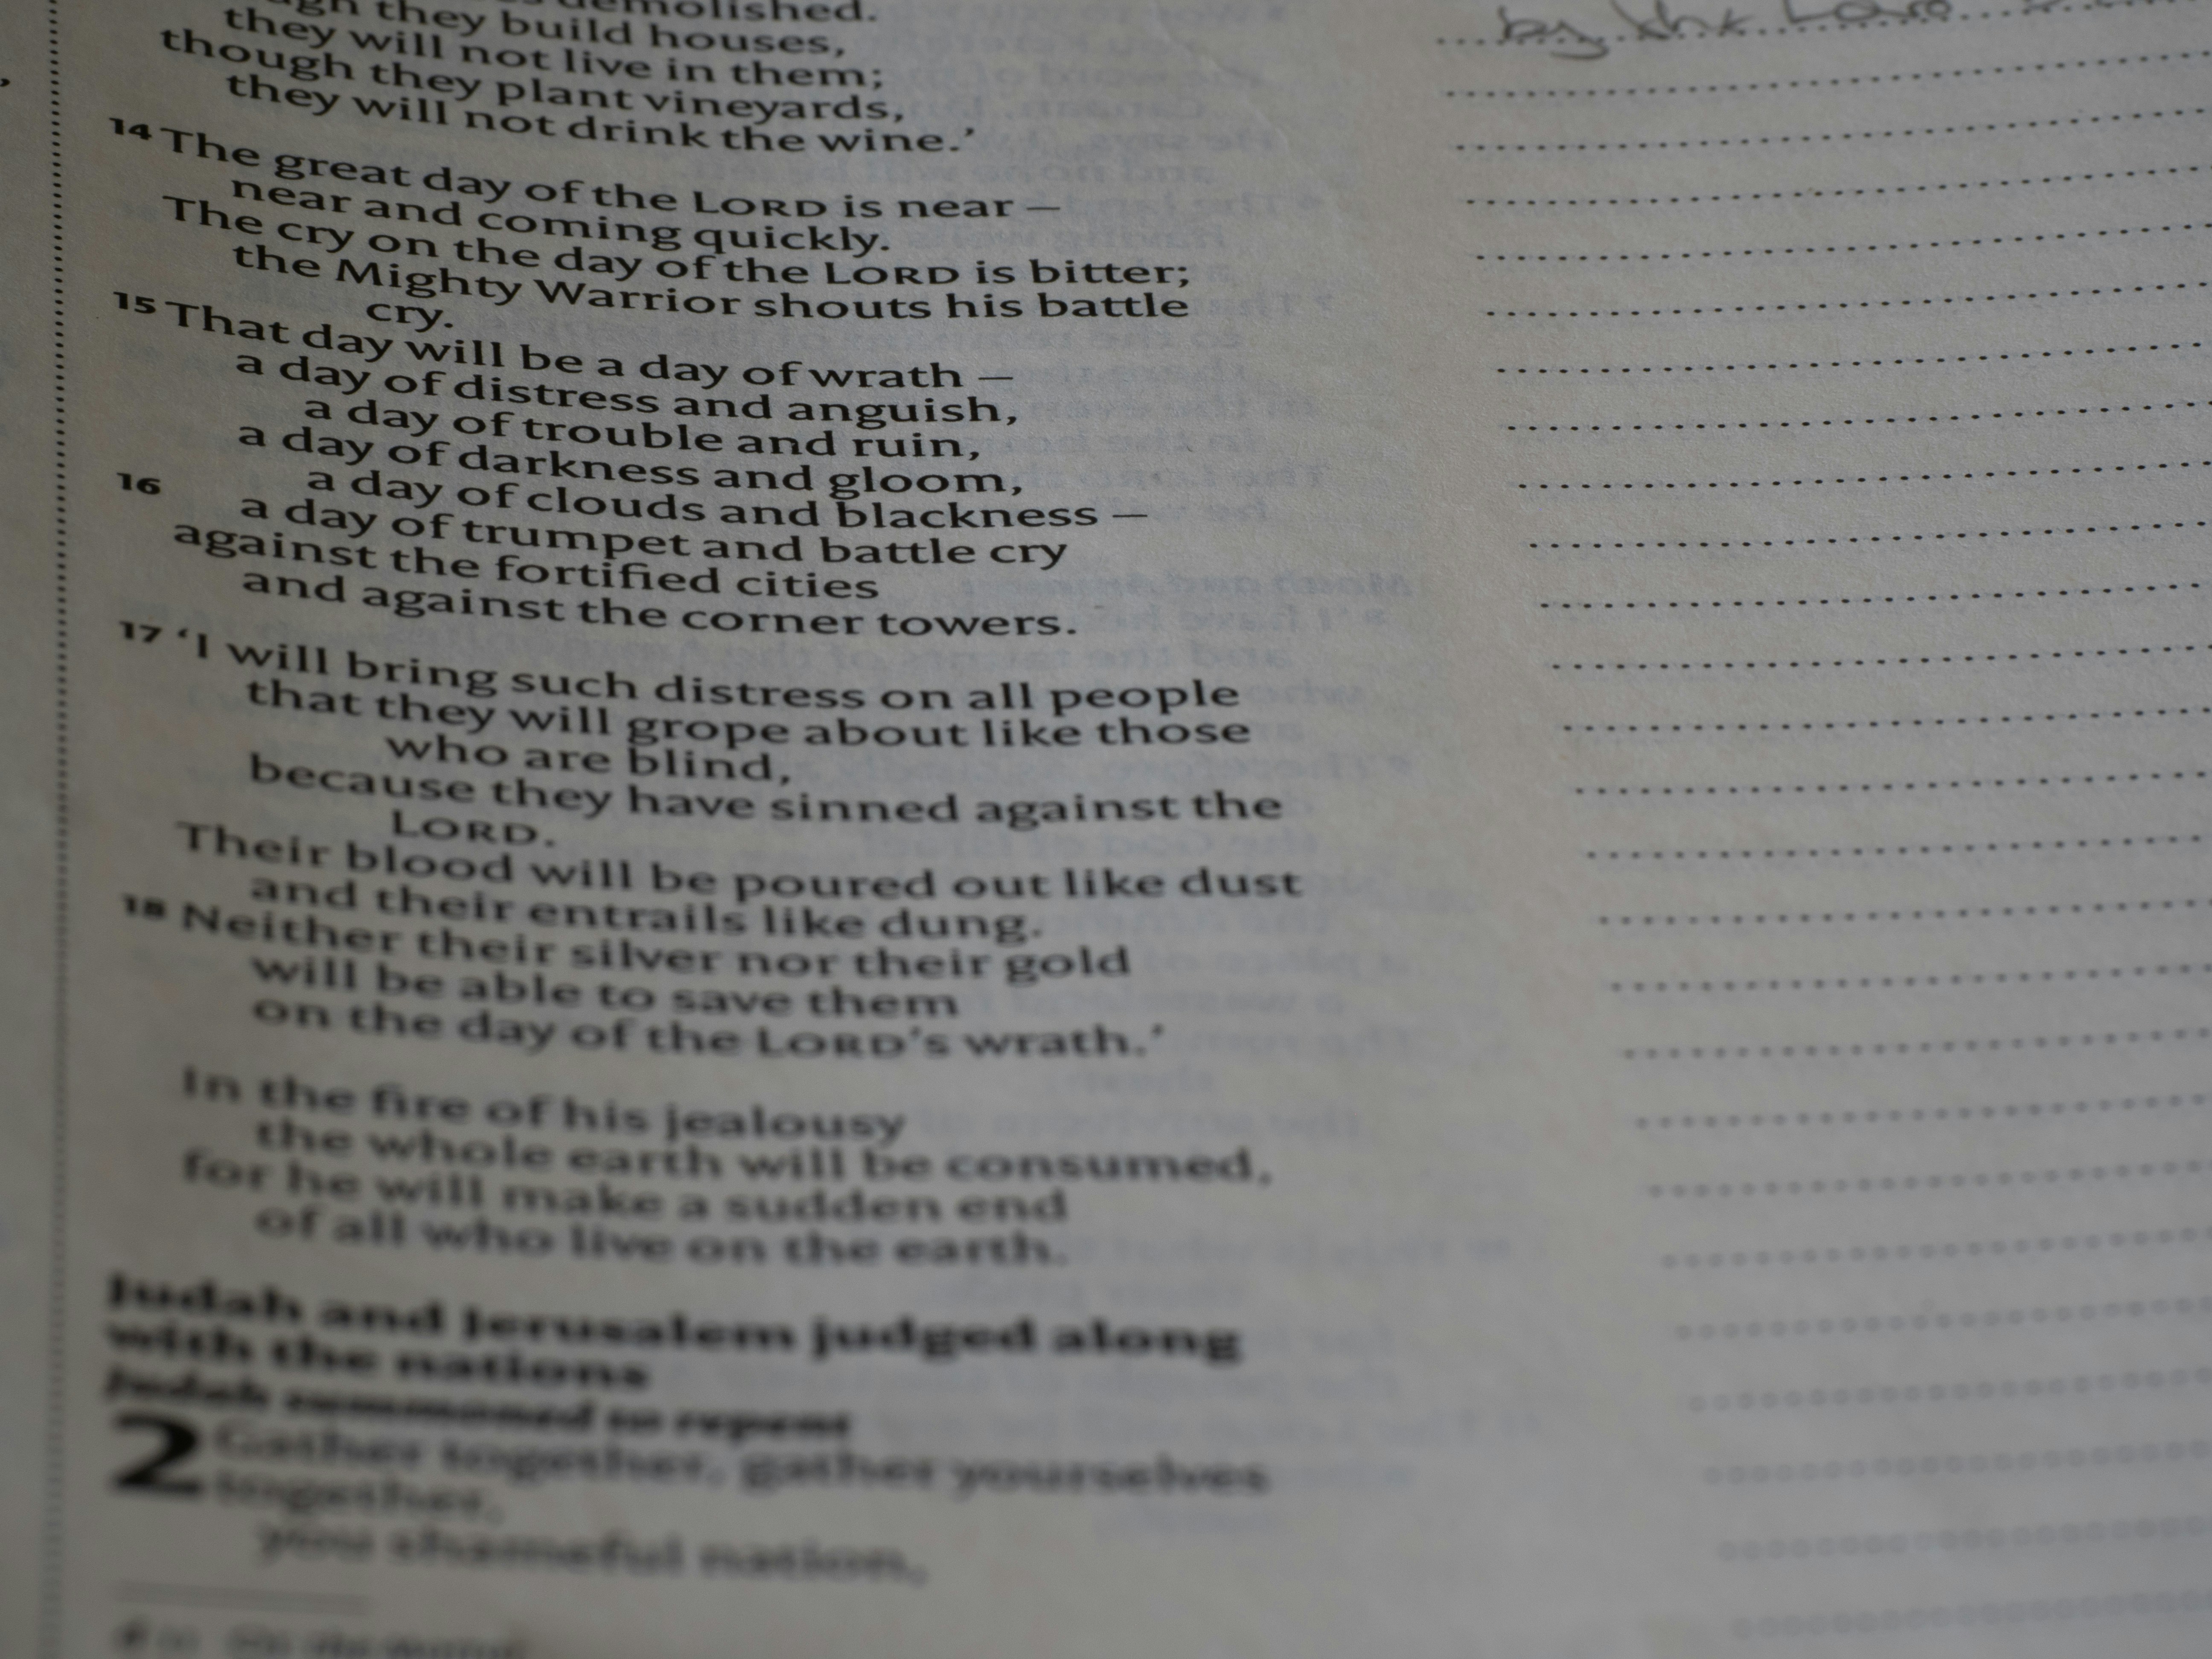 demolished.
they build houses,
they will not live in them;
though they plant vineyards,
they will not drink the wine.’
14 The great day of the LORD is near –
near and coming quickly.
The cry on the day of the LORD is bitter;
the Mighty Warrior shouts his battle
cry.
15 That day will be a day of wrath –
a day of distress and anguish,
a day of trouble and ruin,
a day of darkness and gloom,
a day of clouds and blackness –
16 a day of trumpet and battle cry
against the fortified cities
and against the corner towers.
17 ‘I will bring such distress on all people
that they will grope about like those
who are blind,
because they have sinned against the
LORD.
Their blood will be poured out like dust
and their entrails like dung.
18 Neither their silver nor their gold
will be able to save them
on the day of the LORD’s wrath.’
In the fire of his jealousy
the whole earth will be consumed,
for he will make a sudden end
of all who live on the earth.
Judah and Jerusalem judged along
with the nations
Judah summoned to repent
2 Gather together, gather yourselves
together,
you shameful nation,
by the